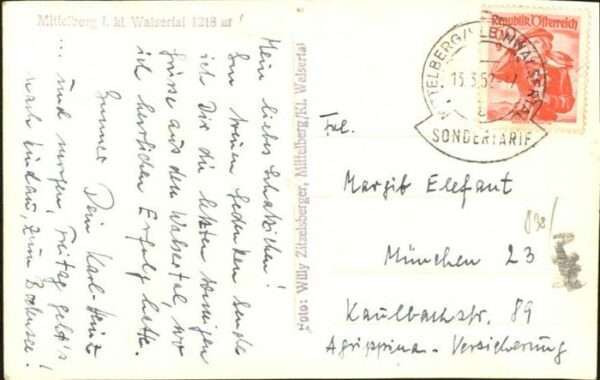 Mittelberg i. kl. Walsertal 1218 m
Mein liebes Schatzilein!
Von treuem Gedenken sende
ich Dir die letzten sonnigen
Grüsse aus dem Walsertal, wo
ich herrlichen Erfolg hatte.
Immer Dein Karl-Heinz
... und morgen, Freitag geht's
nach Lindau, zum Bodensee!
Foto: Willy Mittelberg/Kl. Walsertal
Republik Österreich
MITTELBERG/KLEINWALSERTAL
15.3.52
SONDERTARIF
Frl.
Margit Elefant
München 23
Kaulbachstr. 89
Agrippina-Versicherung